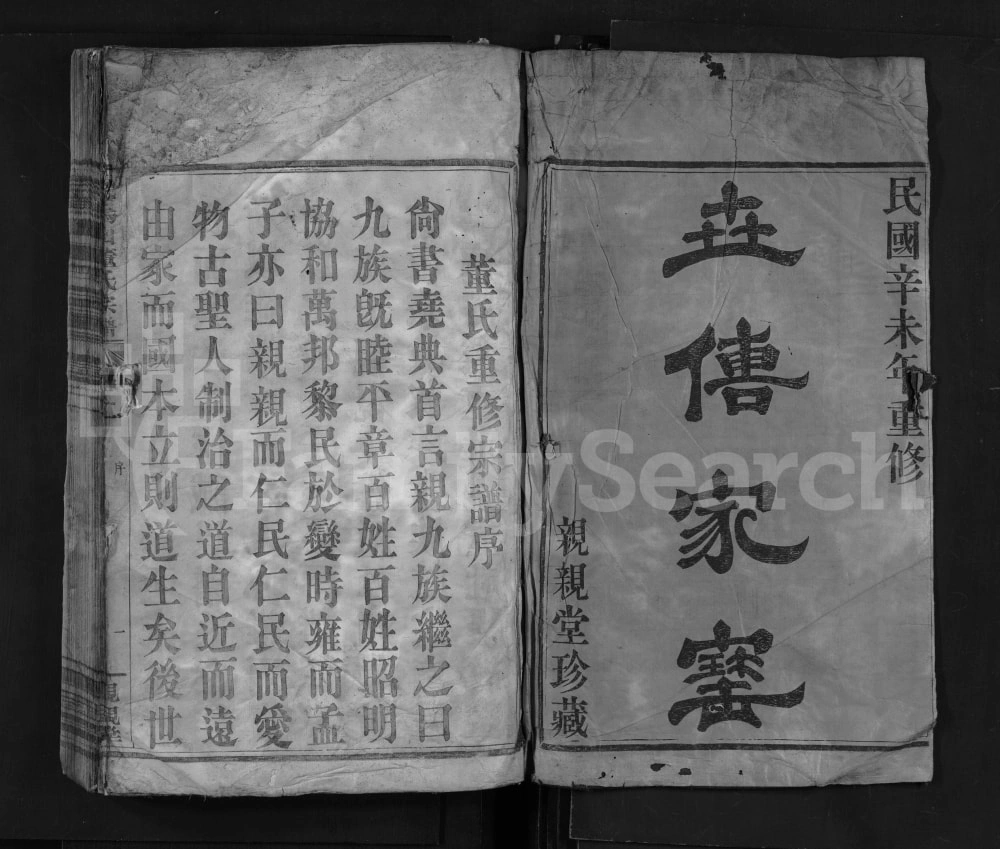 民國辛未年重修
世傳家寶
親親堂珍藏
董氏重修宗譜序
尙書堯典首言親九族繼之曰
九族旣睦平章百姓百姓昭明
協和萬邦黎民於變時雍而孟
子亦曰親親而仁民仁民而愛
物古聖人制治之道自近而遠
由家而國本立則道生矣後世
序
一
FamilySearch